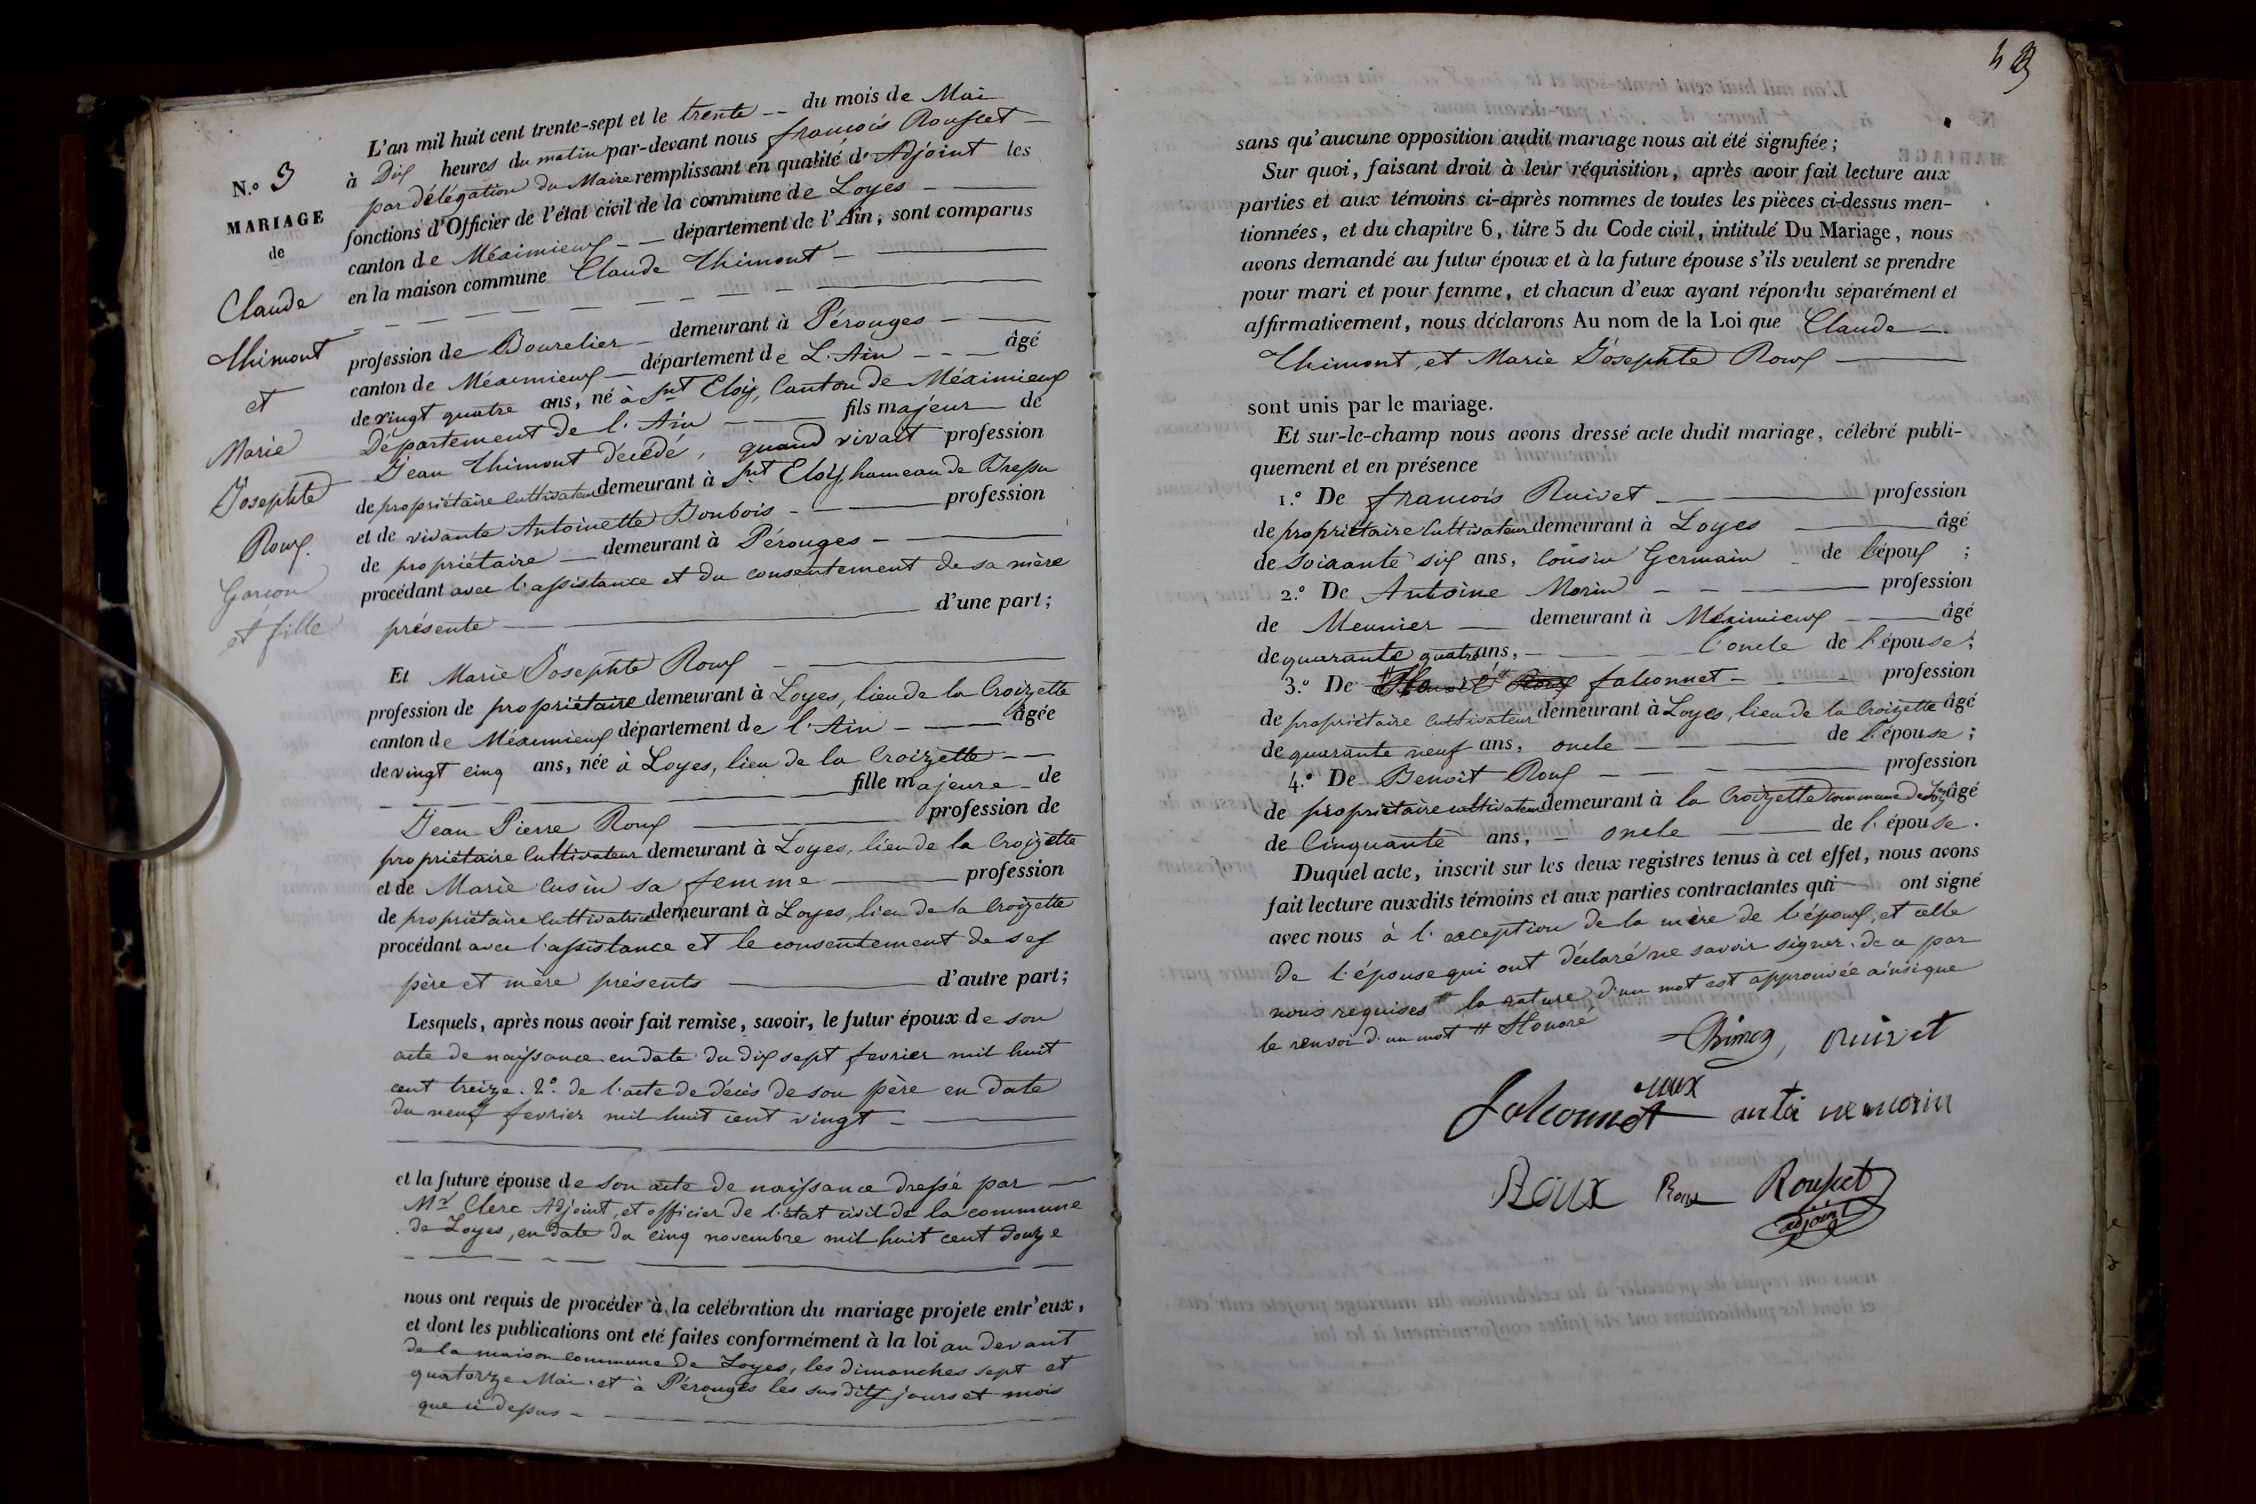 L'an mil huit cent trente-sept et le trente -- du mois de Mai
à Dix heures du matin par-devant nous françois Rousset
par délégation du Maire remplissant en qualité d'Adjoint les
fonctions d'Officier de l'état civil de la commune de Loyes
canton de Méximieux département de l'Ain, sont comparus
en la maison commune Claude Thimont
N.º 9
MARIAGE
de
Claude
Thimont
et
Marie
Josephte
Roux.
Garçon
et fille
profession de Bourelier demeurant à Pérouges
canton de Méximieux département de L'Ain âgé
de vingt quatre ans, né à Snt Eloy, Canton de Méximieux
Département de l'Ain fils majeur de
Jean Thimont décédé, quand vivait profession
de propriétaire Cultivateur demeurant à Snt Eloy, hameau de
et de vivante Antoinette Bonbois profession
de propriétaire demeurant à Pérouges
procédant avec l'assistance et du consentement de sa mère
présente d'une part;
Et Marie Josephte Roux
profession de propriétaire demeurant à Loyes, lieu de la Croizette
canton de Méximieux département de l'Ain âgée
de vingt cinq ans, née à Loyes, lieu de la Croizette
fille majeure de
Jean Pierre Roux profession de
propriétaire Cultivateur demeurant à Loyes, lieu de la Croizette
et de Marie Cusin sa femme profession
de propriétaire Cultivatrice demeurant à Loyes, lieu de la Croizette
procédant avec l'assistance et le consentement de ses
père et mère présents d'autre part;
Lesquels, après nous avoir fait remise, savoir, le futur époux de son
acte de naissance en date du dix sept fevrier mil huit
cent treize. 2º. de l'acte de décès de son père en date
du neuf fevrier mil huit cent vingt
et la future épouse de son acte de naissance dressé par
Mr Clerc Adjoint, et officier de l'état civil de la commune
de Loyes, en date du cinq novembre mil huit cent douze
nous ont requis de procéder à la celébration du mariage projete entr'eux,
et dont les publications ont eté faites conformément à la loi au devant
de la maison commune de Loyes, les dimanches sept et
quatorze Mai. et à Pérouges les sus dits jours et mois
que ci dessus
sans qu'aucune opposition audit mariage nous ait été signifiée;
Sur quoi, faisant droit à leur réquisition, après avoir fait lecture aux
parties et aux témoins ci-après nommes de toutes les pièces ci-dessus men-
tionnées, et du chapitre 6, titre 5 du Code civil, intitulé Du Mariage, nous
avons demandé au futur époux et à la future épouse s'ils veulent se prendre
pour mari et pour femme, et chacun d'eux ayant répondu séparément et
affirmativement, nous déclarons Au nom de la Loi que Claude
Thimont, et Marie Josephte Roux
sont unis par le mariage.
Et sur-le-champ nous avons dressé acte dudit mariage, célébré publi-
quement et en présence
1.º De françois Ruivet profession
de propriétaire Cultivateur demeurant à Loyes âgé
de Soixante six ans, Cousin Germain de l'époux ;
2.º De Antoine Morin profession
de Meunier demeurant à Méximieux âgé
de quarante quatre ans, L'oncle de l'épouse;
3.º De falconnet profession
de propriétaire Cultivateur demeurant à Loyes, lieu de la Croizette âgé
de quarante neuf ans, oncle de l'épouse;
4.º De Benoit Roux profession
de propriétaire cultivateur demeurant à la Croizette commune de Loyes âgé
de Cinquante ans, oncle de l'épouse.
Duquel acte, inscrit sur les deux registres tenus à cet effet, nous avons
fait lecture auxdits témoins et aux parties contractantes qui ont signé
avec nous à l'exception de la mère de l'époux, et celle
de l'épouse qui ont déclaré ne savoir signer. de ce par
nous requises la rature d'un mot est approuvée ainsique
le renvoi d'un mot # Honoré
Ruivet
falconnet antoine morin
Roux Roux Rousset
adjoint